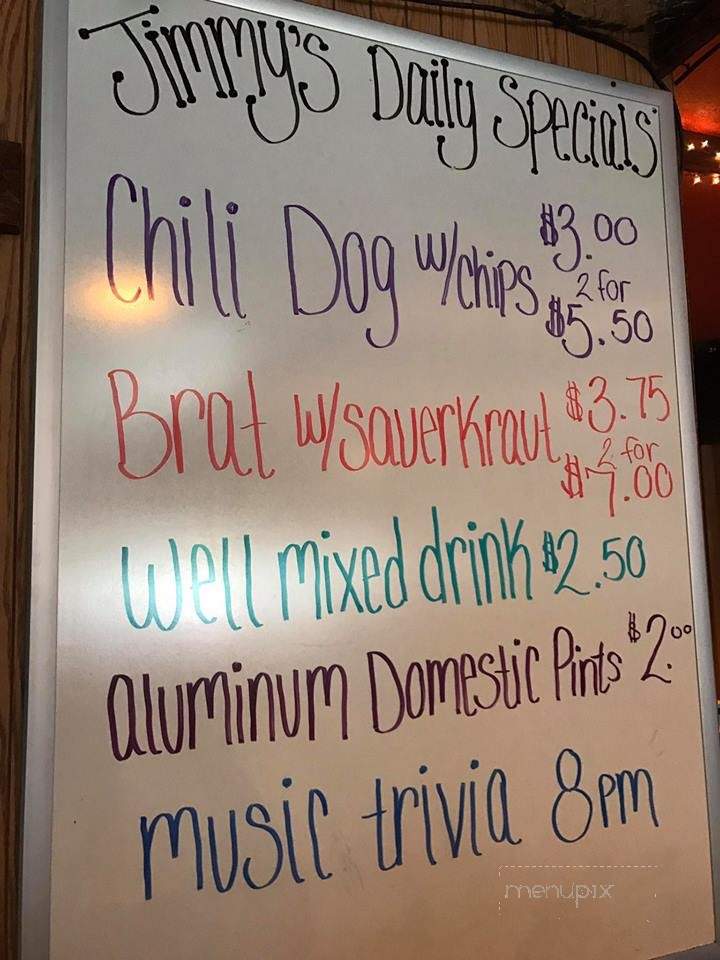 Jimmy's Daily Specials
Chili Dog w/chips $3.00
2 for
$5.50
Brat w/sauerkraut $3.75
2 for
$7.00
Well mixed drink $2.50
aluminum Domestic Pints $2.00
music trivia 8pm
menupix